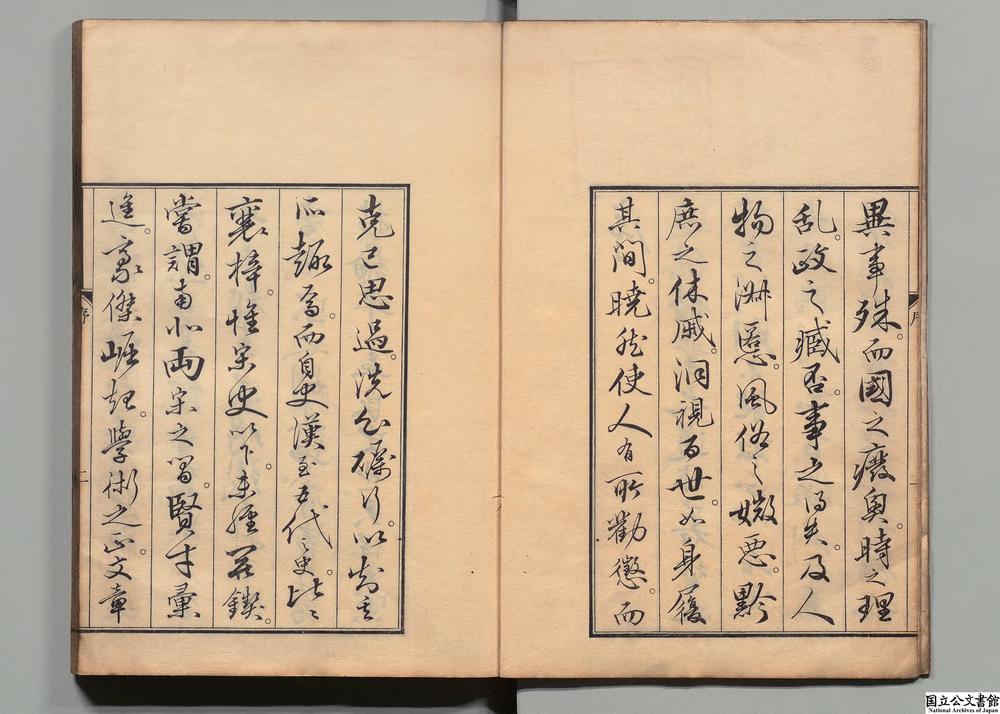 異事殊。而國之癈興。時之理
乱。政之臧否。事之得失。及人
物之淑慝。風俗之媺惡。黔
庶之休戚。洞視百世。如身履
其間。曉然使人有所勸懲。而
克己思過。洗心礪行。以其
所趣焉。而自史漢至五代之史。比々
襄梓。惟宋史以下。未經鍥。
嘗謂南北両宋之間。賢才彙
進。豪傑崛起。學術之正。文章
序 二
国立公文書館
National Archives of Japan